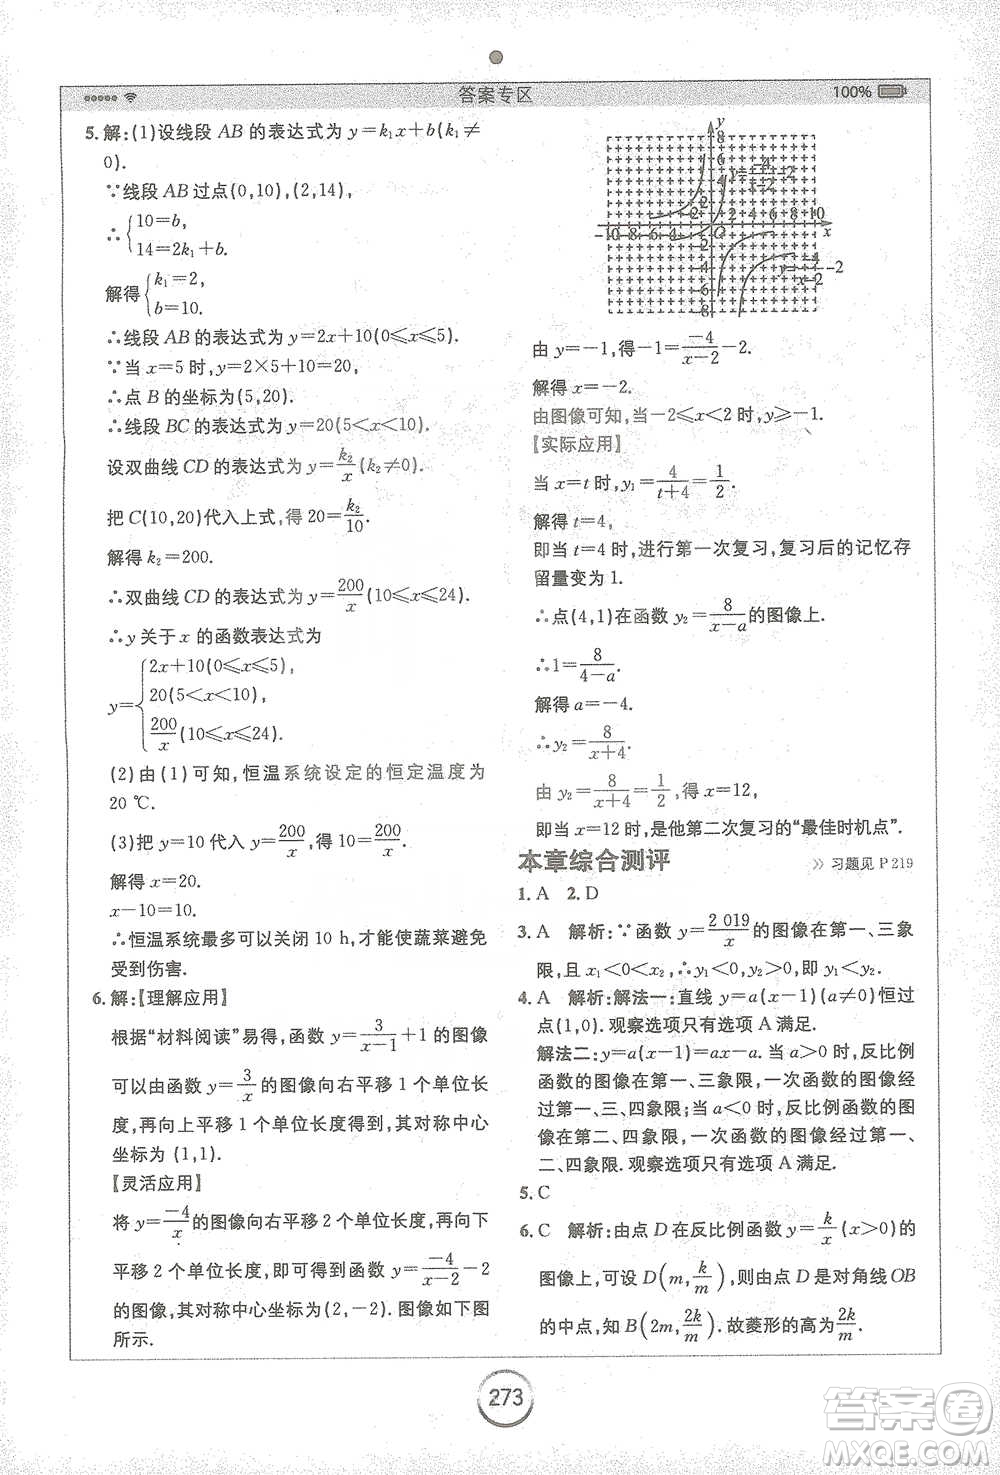 答案专区
100%
5.解:(1)设线段 AB 的表达式为 y=k₁x+b(k₁≠
0).
∵线段 AB 过点(0,10),(2,14),
∴{10=b,
14=2k₁+b.
解得{k₁=2,
b=10.
∴线段 AB 的表达式为 y=2x+10(0≤x≤5).
∵当 x=5 时,y=2×5+10=20,
∴点 B 的坐标为(5,20).
∴线段 BC 的表达式为 y=20(5<x<10).
设双曲线 CD 的表达式为 y=k₂/x(k₂≠0).
把 C(10,20)代入上式,得 20=k₂/10.
解得 k₂=200.
∴双曲线 CD 的表达式为 y=200/x(10≤x≤24).
∴y 关于 x 的函数表达式为
y={2x+10(0≤x≤5),
20(5<x<10),
200/x(10≤x≤24).
(2)由(1)可知,恒温系统设定的恒定温度为
20 ℃.
(3)把 y=10 代入 y=200/x,得 10=200/x.
解得 x=20.
x-10=10.
∴恒温系统最多可以关闭 10 h,才能使蔬菜避免
受到伤害.
6.解:【理解应用】
根据“材料阅读”易得,函数 y=3/(x-1)+1 的图像
可以由函数 y=3/x 的图像向右平移 1 个单位长度,
再向上平移 1 个单位长度得到,其对称中心
坐标为 (1,1).
【灵活应用】
将 y=-4/x的图像向右平移 2 个单位长度,再向下
平移 2 个单位长度,即可得到函数 y=-4/(x-2)-2
的图像,其对称中心坐标为(2,-2).图像如下图
所示.
y
8
6
4
2
-10 -8 -6 -4 -2 O 2 4 6 8 10
x
-2
-4
-6
-8
y=-4/(x-2)-2
y=-4/(x-2)-2
由 y=-1,得-1=-4/(x-2)-2.
解得 x=-2.
由图像可知,当-2≤x<2 时,y≥-1.
【实际应用】
当 x=t 时,y₁=4/(t+4)=1/2.
解得 t=4,
即当 t=4 时,进行第一次复习,复习后的记忆存
留量变为 1.
∴点(4,1)在函数 y₂=8/(x-a)的图像上.
∴1=8/(4-a).
解得 a=-4.
∴y₂=8/(x+4).
由 y₂=8/(x+4)=1/2,得 x=12,
即当 x=12 时,是他第二次复习的“最佳时机点”.
本章综合测评
» 习题见 P 219
1. A 2. D
3. A 解析:∵函数 y=2 019/x的图像在第一、三象
限,且 x₁<0<x₂,∴y₁<0,y₂>0,∴y₁<y₂.
4. A 解析:解法一:直线 y=a(x-1)(a≠0)恒过
点(1,0).观察选项只有选项 A 满足.
解法二:y=a(x-1)=ax-a.当 a>0 时,反比例
函数图像在第一、三象限,一次函数的图像经
过第一、三、四象限;当 a<0 时,反比例函数的图
像在第二、四象限,一次函数的图像经过第一、
二、四象限.观察选项只有选项 A 满足.
5. C
6. C 解析:由点 D 在反比例函数 y=k/x(x>0)的
图像上,可设 D(m,k/m),则由点 D 是对角线 OB
的中点,知 B(2m,2k/m).故菱形的高为2k/m.
273
答案圈
MXQE.COM